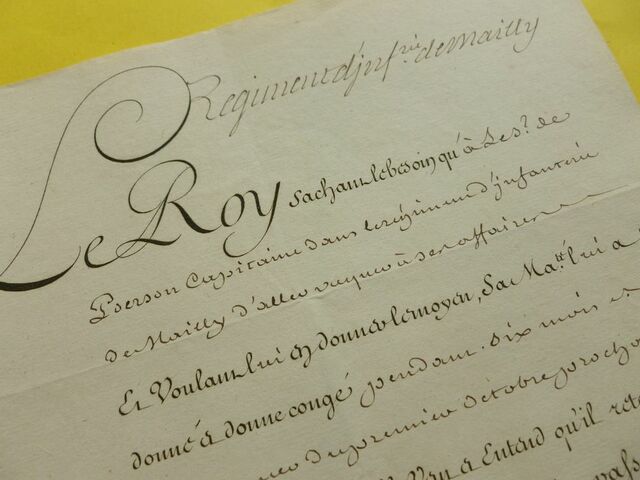 Regiment d'jnf.rie de Mailly
Le Roy sachant le besoin qu'à Le s.r de
Pierson Capitaine dans le régiment d'jnfanterie
de Mailly d'aller vaquer à ses affaires
Et Voulant lui en donner le moyen, Sa Ma.té lui a
donné et donne congé pendant six mois et
du premier d'éctobre procha
Roy a Entend qu'il reto